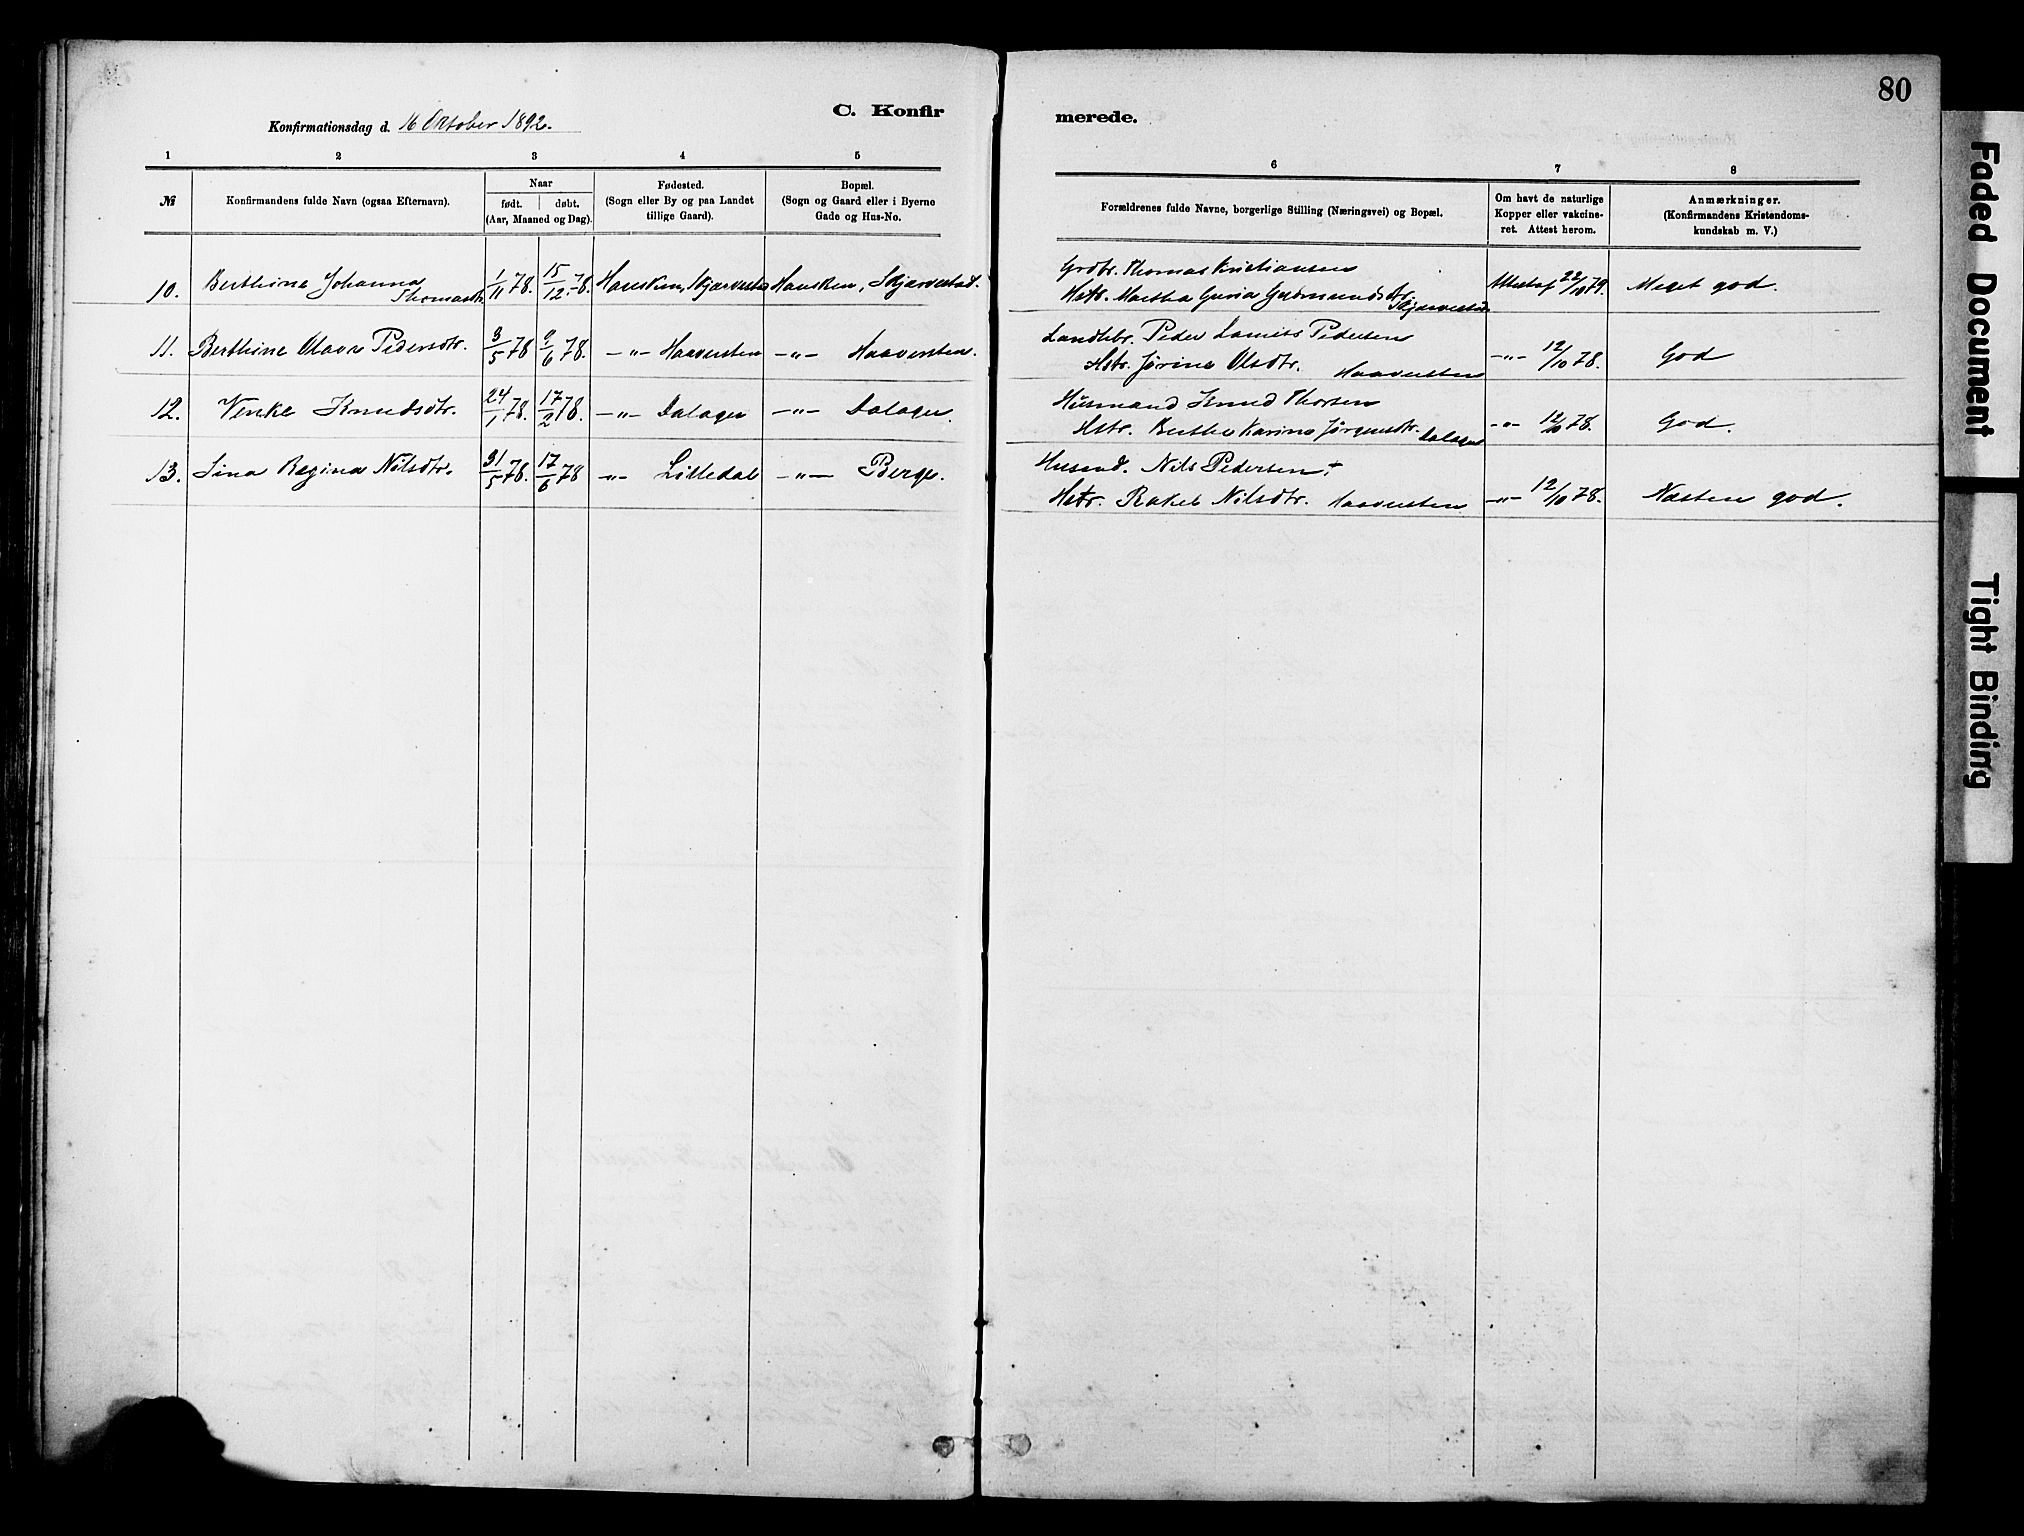 80
C. Konfirmerede.
Konfirmationsdag d. 16 Oktober 1892.
1 2 3 4 5 6 7 8
№ Konfirmandens fulde Navn (ogsaa Efternavn).
Naar
født. døbt.
(Aar, Maaned og Dag).
Fødested.
(Sogn eller By og paa Landet
tillige Gaard).
Bopæl.
(Sogn og Gaard eller i Byerne
Gade og Hus-No.
Forældrenes fulde Navne, borgerlige Stilling (Næringsvei) og Bopæl.
Om havt de naturlige
Kopper eller vakcine-
ret. Attest herom.
Anmærkninger.
(Konfirmandens Kristendoms-
kundskab m. V.)
10. Berthine Johanna Thomasdtr. 1/11 78. 15/12 78. Hausken, Skjærvestad Hausken, Skjærvestad. Grdbr. Thomas Kristiansen
Hstr. Martha Guria Gudmundsdtr. Attest af 22/10 79. Meget god.
11. Berthine Olava Pedersdtr. 3/5 78 9/6 78. -"- Haavesten -"- Haavesten. Landhbr. Peder Laurits Pedersen
Hstr. Jørine Olsdtr. Haavesten -"- 12/10 78. God
12. Venke Knudsdtr. 24/1 78. 17/2 78. -"- Dalager -"- Dalager. Husmand Knud Thorsen
Hstr. Berthe Karine Jørgensdtr. Dalager -"- 12/10 78. God.
13. Sina Regina Nilsdtr. 31/5 78. 17/6 78 -"- Lilledal -"- Berge. Husmd. Nils Pedersen +
Hstr. Rakel Nilsdtr. Haavesten -"- 12/10 78. Næsten god.
Faded Document
Tight Binding